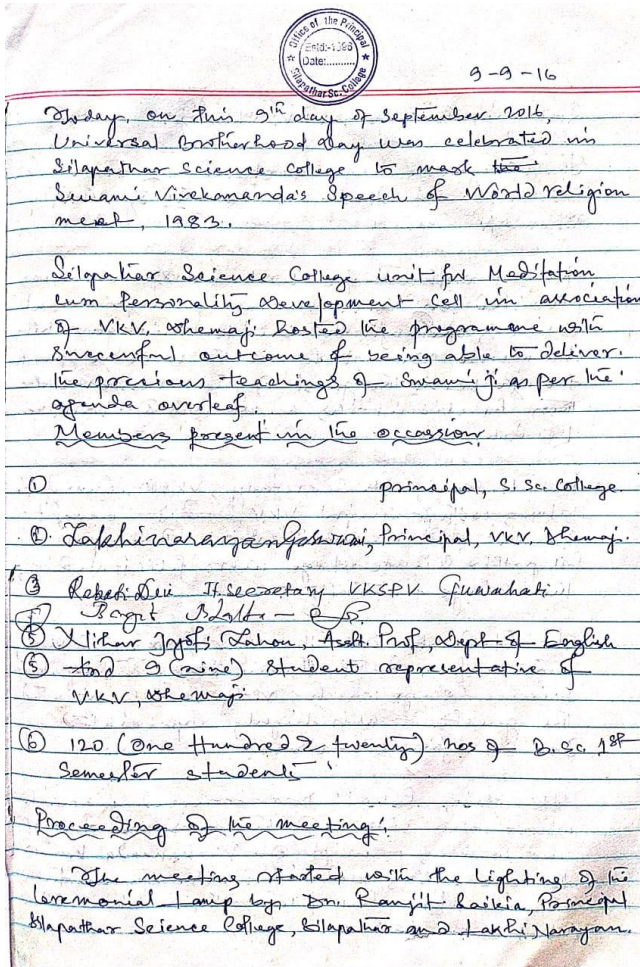 Office of the Principal
Estd:-1996
Date:..........
Silapathar Sc. College
9-9-16
Today, on this 9th day of September 2016,
Universal Brotherhood day was celebrated in
Silapathar Science College to mark the
Swami Vivekananda's Speech of World religion
meet, 1983.
Silapathar Science College unit for Meditation
cum Personality Development Cell in association
of VKV, Dhemaji hosted the programme with
successful outcome of being able to deliver
the precious teachings of Swami ji as per the
agenda overleaf.
Members present in the occassion
① principal, S. Sc. College
②. Lakhinarayan Goswami, Principal, VKV, Dhemaji.
③ Rebati Devi Jt. secretary VKSPV Guwahati
⑤ Nihar Jyoti Lahon, Asstt. Prof., Dept of English
⑤ And 9 (nine) Student representative of
VKV, Dhemaji
⑥ 120 (One Hundred & twenty) nos of B.Sc. 1st
Semester students
Proceeding of the meeting:
The meeting started with the Lighting of the
Ceremonial Lamp by Dr. Ranjit Saikia, Principal
Silapathar Science College, Silapathar and Lakhi Narayan.